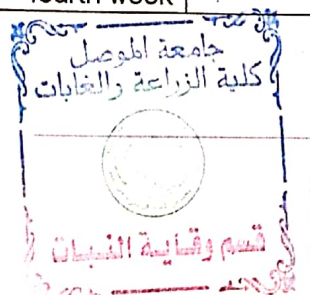 fourth week
جامعة الموصل
كلية الزراعة والغابات
قسم وقاية النبات